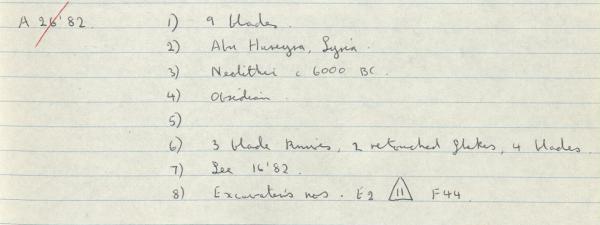 A 26'82. 1) 9 blades.
2) Abu Hureyra, Syria.
3) Neolithic c 6000 BC.
4) Obsidian.
5)
6) 3 blade knives, 2 retouched flakes, 4 blades.
7) See 16'82.
8) Excavator's nos. E2 11 F44.